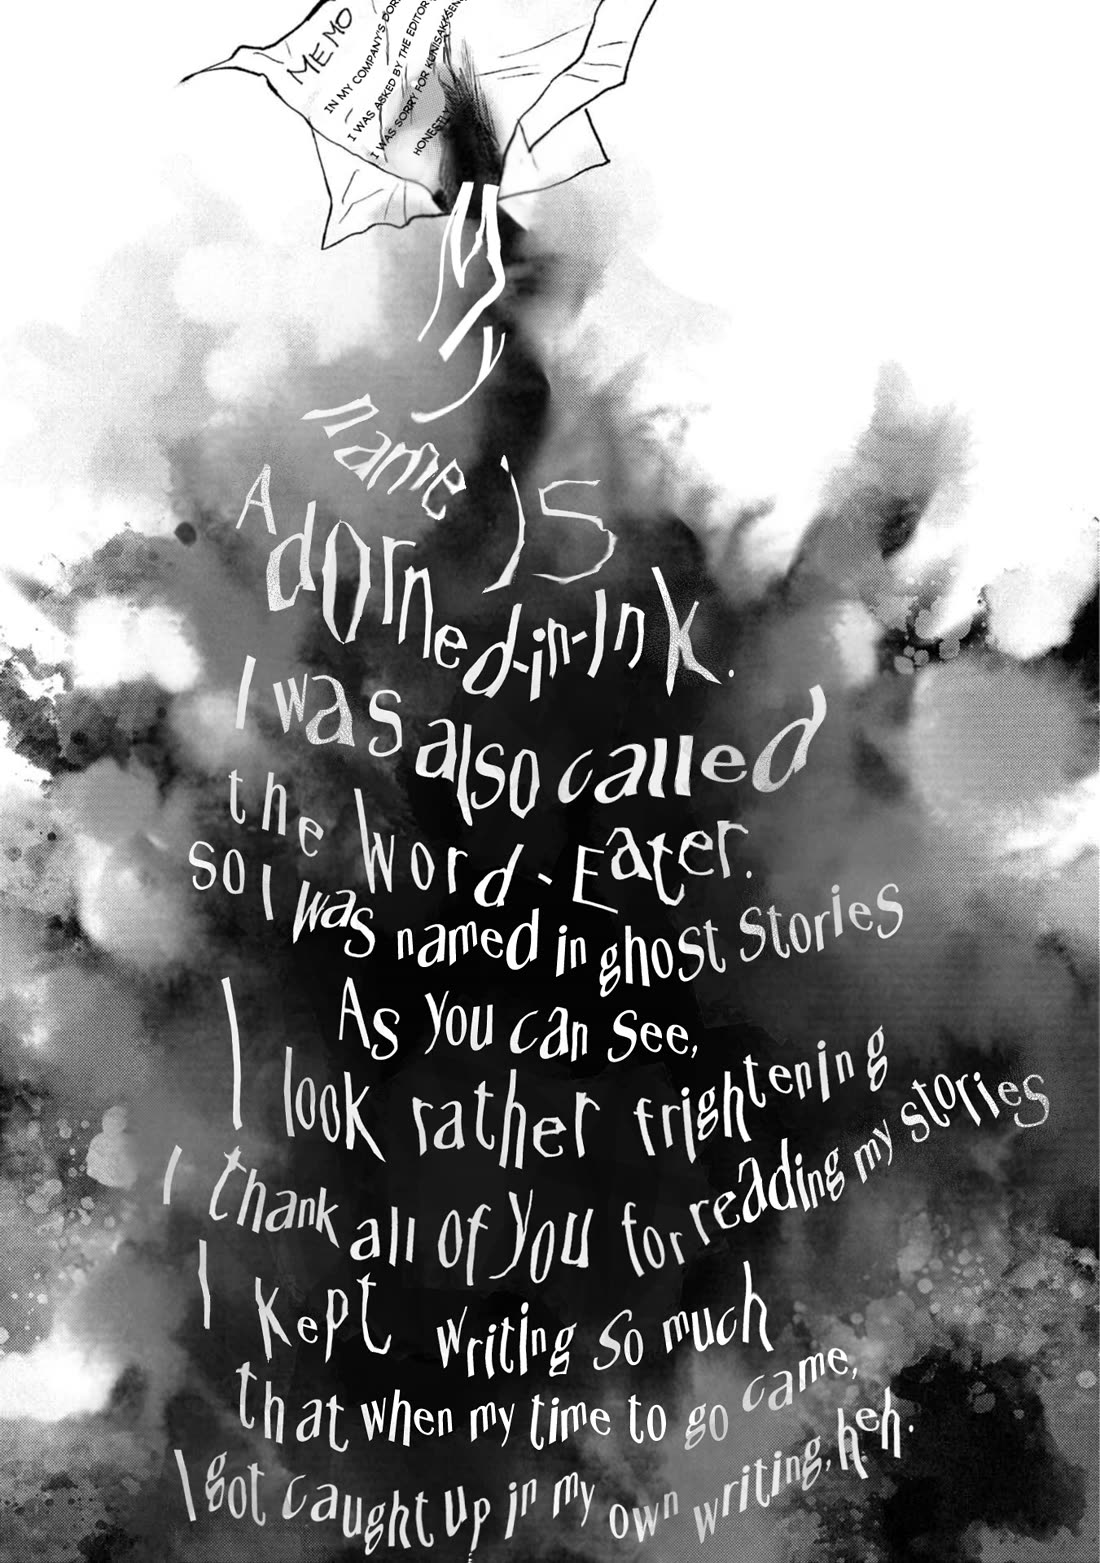 MEMO
IN MY COMPANY'S DOR
I WAS ASKED BY THE EDITOR
I WAS SORRY FOR
HONESTLY
My
name is
Adorned-in-Ink.
I was also called
the Word-Eater.
so I was named in ghost stories
As you can see,
I look rather frightening
I thank all of you for reading my stories
I kept writing so much
that when my time to go came,
I got caught up in my own writing, heh.